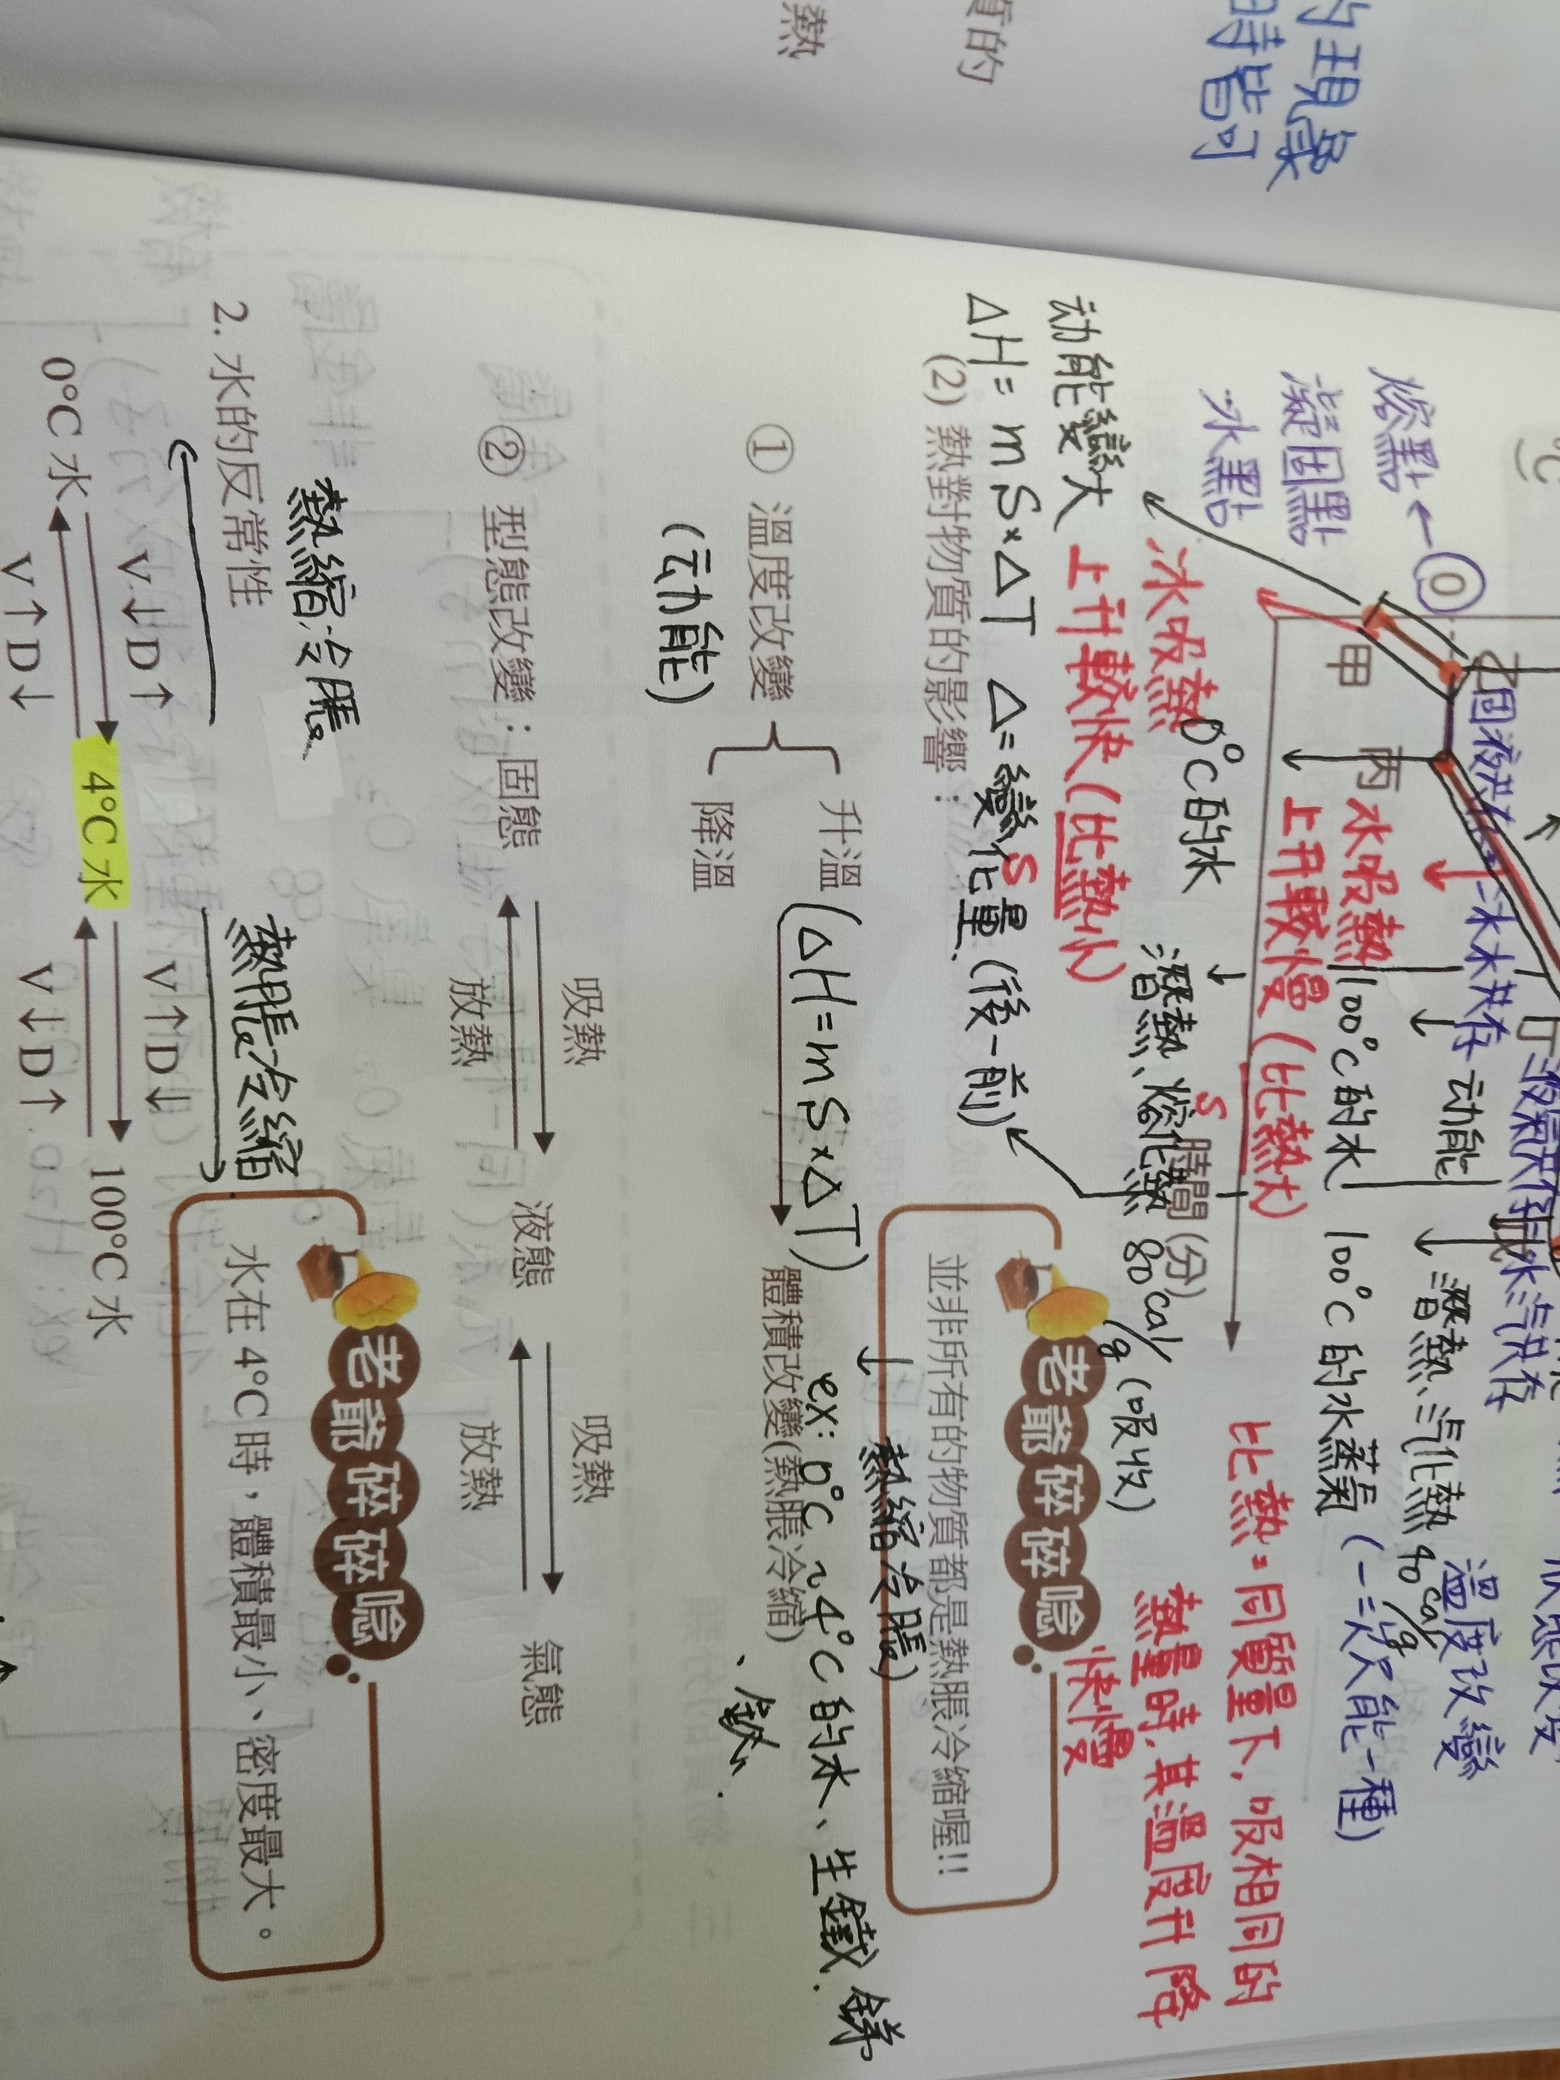 的現象
時皆可
質的
熱
°C
0
熔點 ←
凝固點
冰點
甲
乙
丙
固液共存
冰水共存
水汽共存
動能
潛熱、汽化熱
溫度改變
水吸熱
上升較慢(比熱大)
100°C的水
100°C的水蒸氣(一次只能一種)
冰吸熱
0°C的水
潛熱、熔化熱 80 cal/g (吸收)
S
時間(分)
动能變大
上升較快(比熱小)
S
比熱=同質量下,吸相同的
熱量時,其溫度升降
快慢
ΔH = m S × ΔT Δ=變化量(後-前)
(2) 熱對物質的影響:
老爺碎碎唸
並非所有的物質都是熱脹冷縮喔!!
熱縮冷脹
① 溫度改變
升溫
降溫
(动能)
(ΔH=mS×ΔT)
體積改變(熱脹冷縮)
ex: 0°C ~4°C的水、生鐵、銻
、鉍.
② 型態改變:固態
吸熱
放熱
液態
吸熱
放熱
氣態
2. 水的反常性
熱縮冷脹
熱脹冷縮
老爺碎碎唸
水在 4°C 時,體積最小、密度最大。
V↓D↑
V↑D↓
0°C 水
4°C 水
100°C 水
V↑D↓
V↓D↑